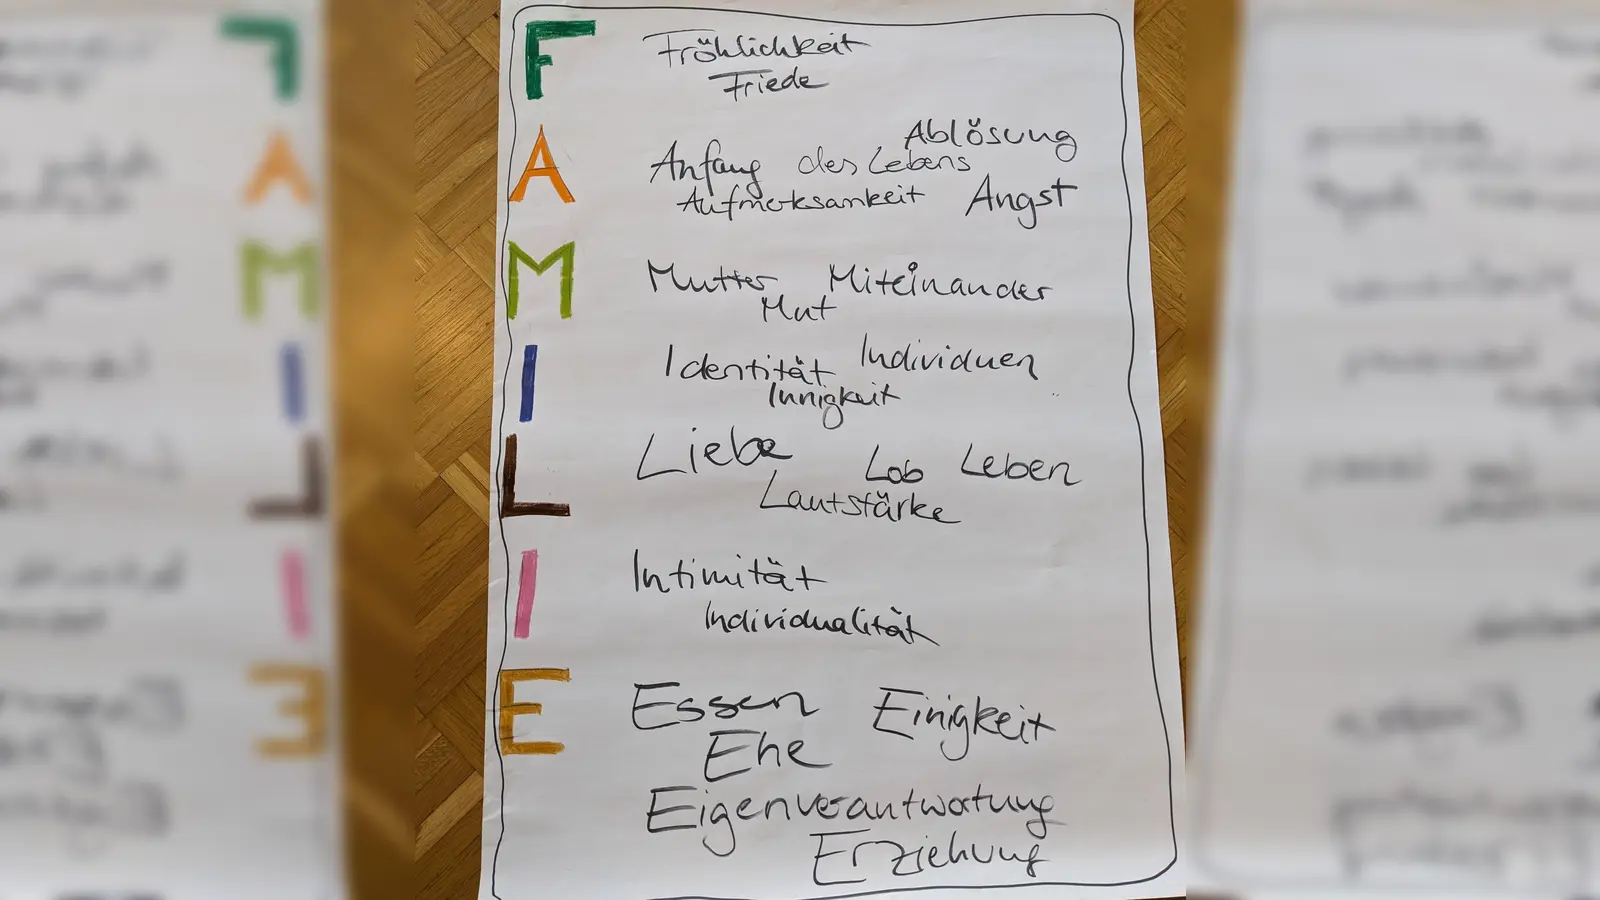 F Fröhlichkeit
Friede
Ablösung
A Anfang des Lebens
Aufmerksamkeit Angst
M Mutter Miteinander
Mut
I Identität Individuen
Innigkeit
L Liebe Lob Leben
Lautstärke
I Intimität
Individualität
E Essen Einigkeit
Ehe
Eigenverantwortung
Erziehung